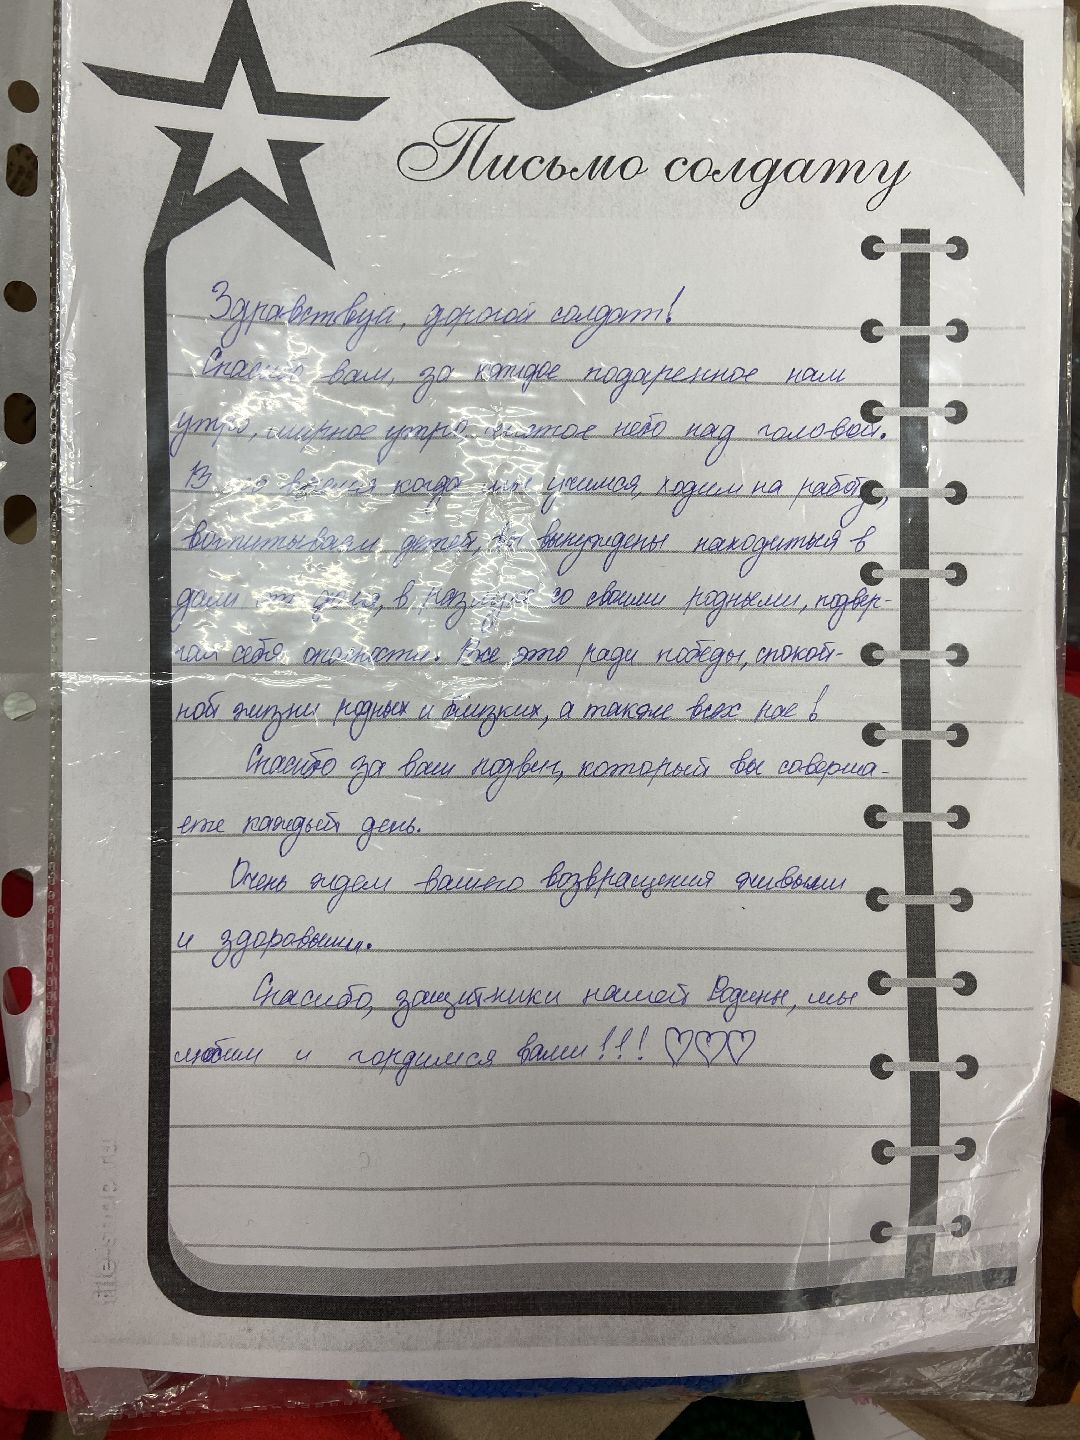 Письмо солдату
Здравствуй, дорогой солдат!
Спасибо вам, за каждое подаренное нам
утро, мирное утро, чистое небо над головой.
В то время когда мы учимся, ходим на работу,
воспитываем детей, вы вынуждены находиться в
дали от дома, в разлуке со своими родными, подвер-
гая себя опасности. Все это ради победы, спокой-
ной жизни родных и близких, а также всех нас!
Спасибо за ваш подвиг, который вы соверша-
ете каждый день.
Очень ждем вашего возвращения живыми
и здоровыми.
Спасибо, защитники нашей Родины, мы
любим и гордимся вами!!! ♡♡♡